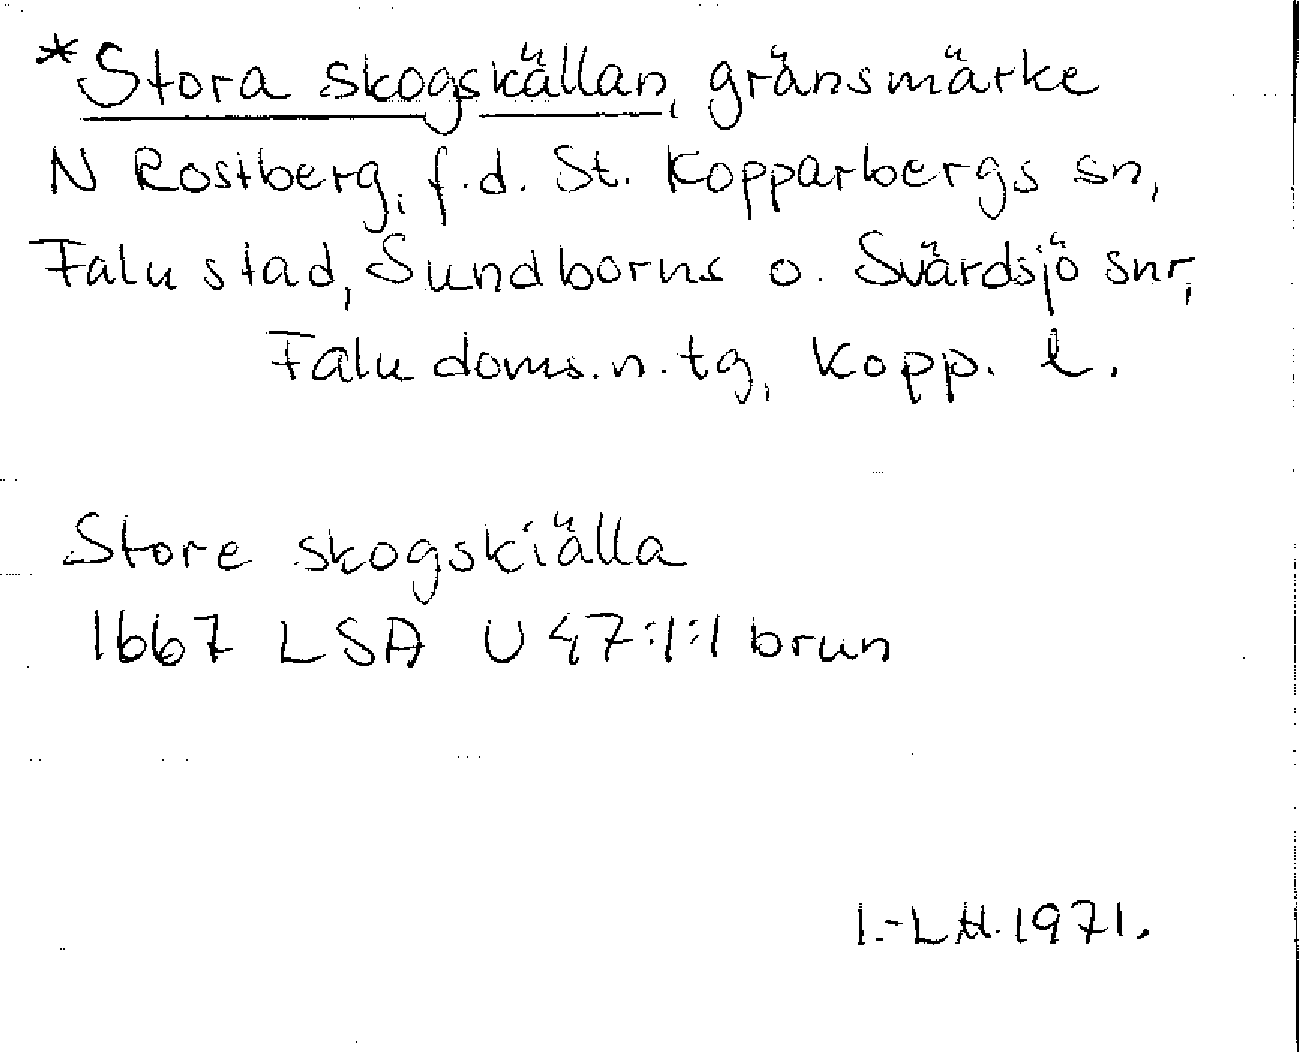 *Stora skogskällan, gränsmärke
N Rostberg, f.d. St. Kopparbergs sn,
Falu stad, Sundborns o. Svärdsjö snr,
Falu doms.n. tg, Kopp. l.
Store skogskiälla
1667 LSA U 47:1:1 brun
I.-L.H. 1971.